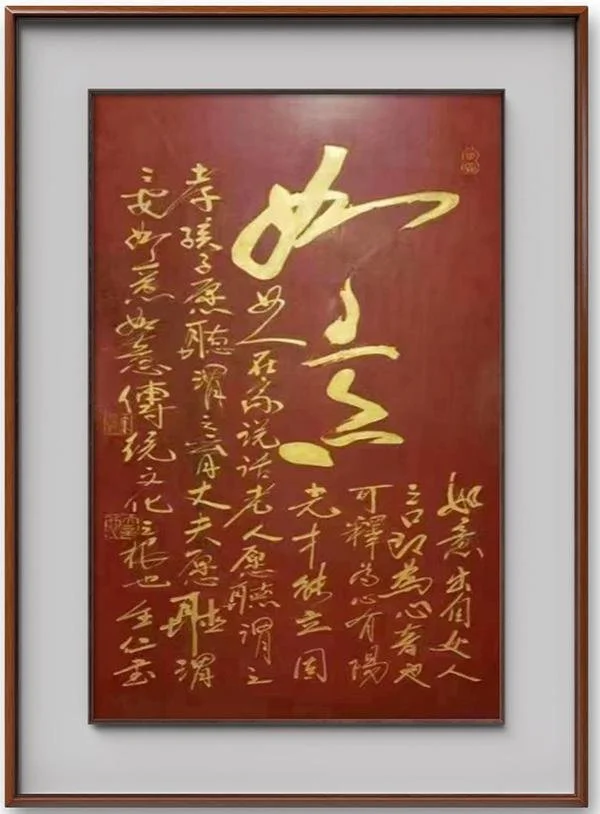 如意
如意出自女人
之口即為心者也
可釋為心有陽
光才能立固
女人在家说话老人愿聽谓之
孝孩子愿聽谓之育丈夫愿聽谓
之安如意如意傳统文化之根也